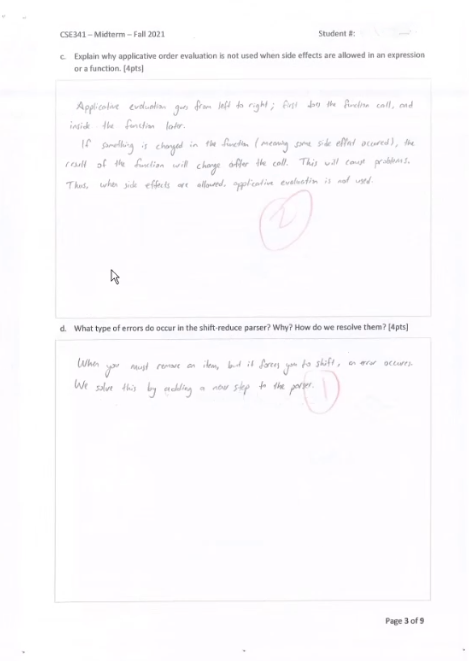 CSE341 – Midterm – Fall 2021 Student #:
c. Explain why applicative order evaluation is not used when side effects are allowed in an expression
or a function. [4pts]
Applicative evaluation goes from left to right; first does the function call, and
inside the function later.
If something is changed in the function (meaning some side effect occured), the
result of the function will change after the call. This will cause problems.
Thus, when side effects are allowed, applicative evaluation is not used.
2
d. What type of errors do occur in the shift-reduce parser? Why? How do we resolve them? [4pts]
When you must remove an item, but it forces you to shift, an error occurs.
We solve this by adding a new step to the parser.
1
Page 3 of 9